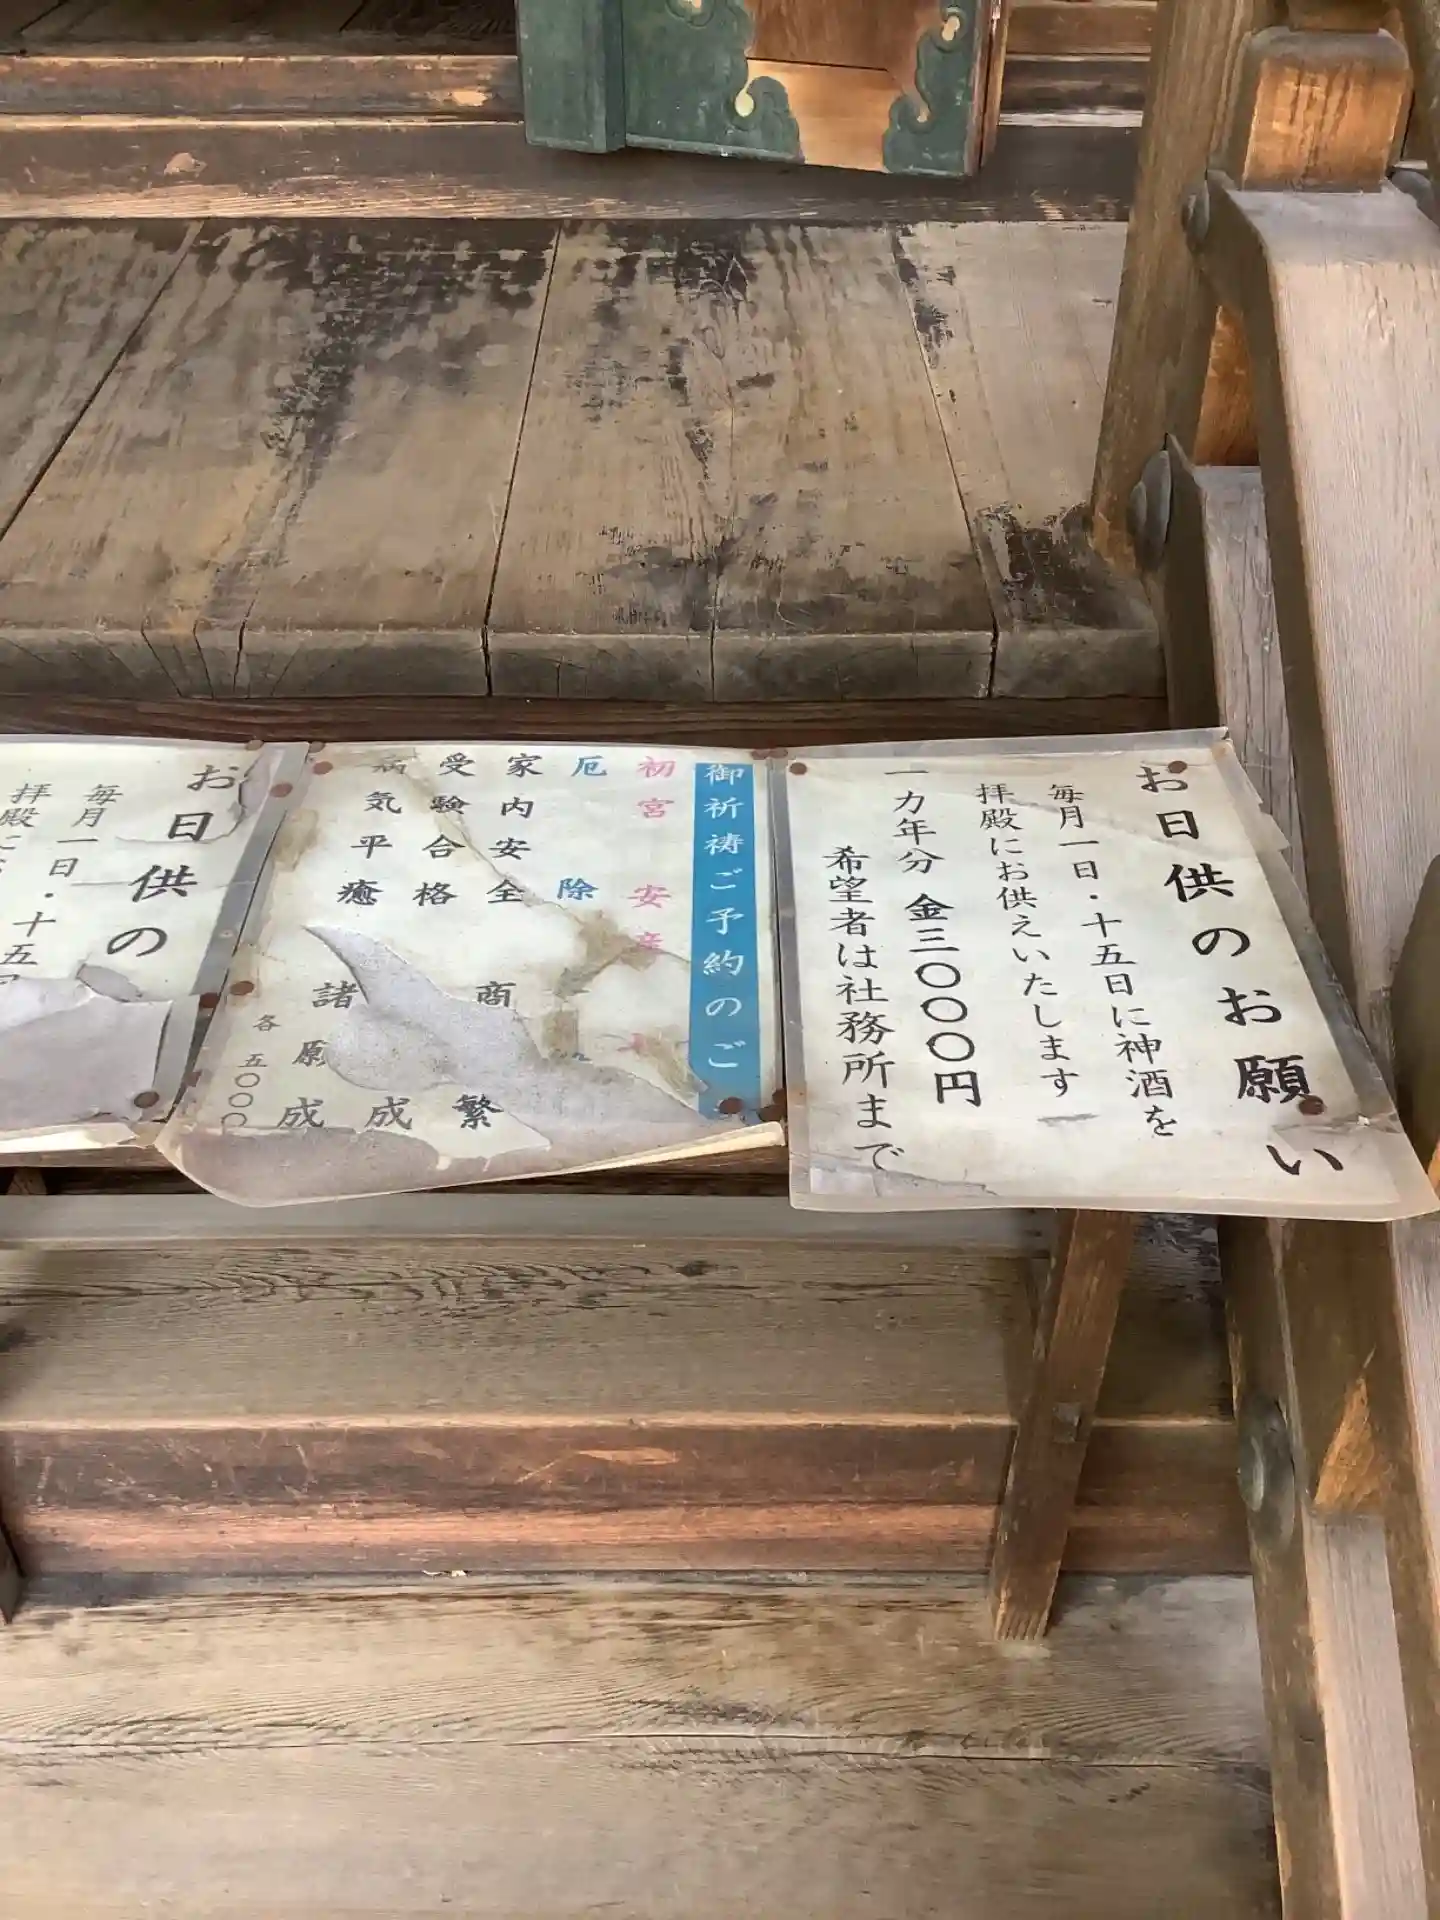 お日供のお願い
毎月一日・十五日に神酒を
拝殿にお供えいたします
一カ年分 金三〇〇〇円
希望者は社務所まで
御祈祷ご予約のご
初宮 安産
厄 除
家内安全 商 繁
受験合格 成
病気平癒 諸願成
各 五〇〇〇
お日供の
毎月一日・十五
拝殿に